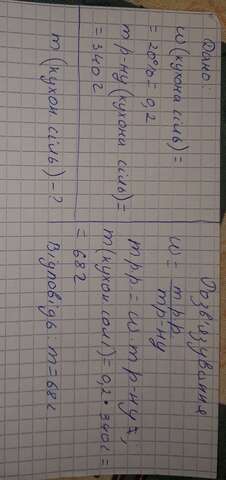 Дано:
w(кухона сіль)=
=20%=0,2
m р-ну(кухона сіль)=
=340г
m(кухон сіль)-?
Розвязування
w= m р.р. / m р-ну
m р.р = w · m р-ну;
m(кухон солі)=0,2·340г=
=68г
Відповідь: m=68г.